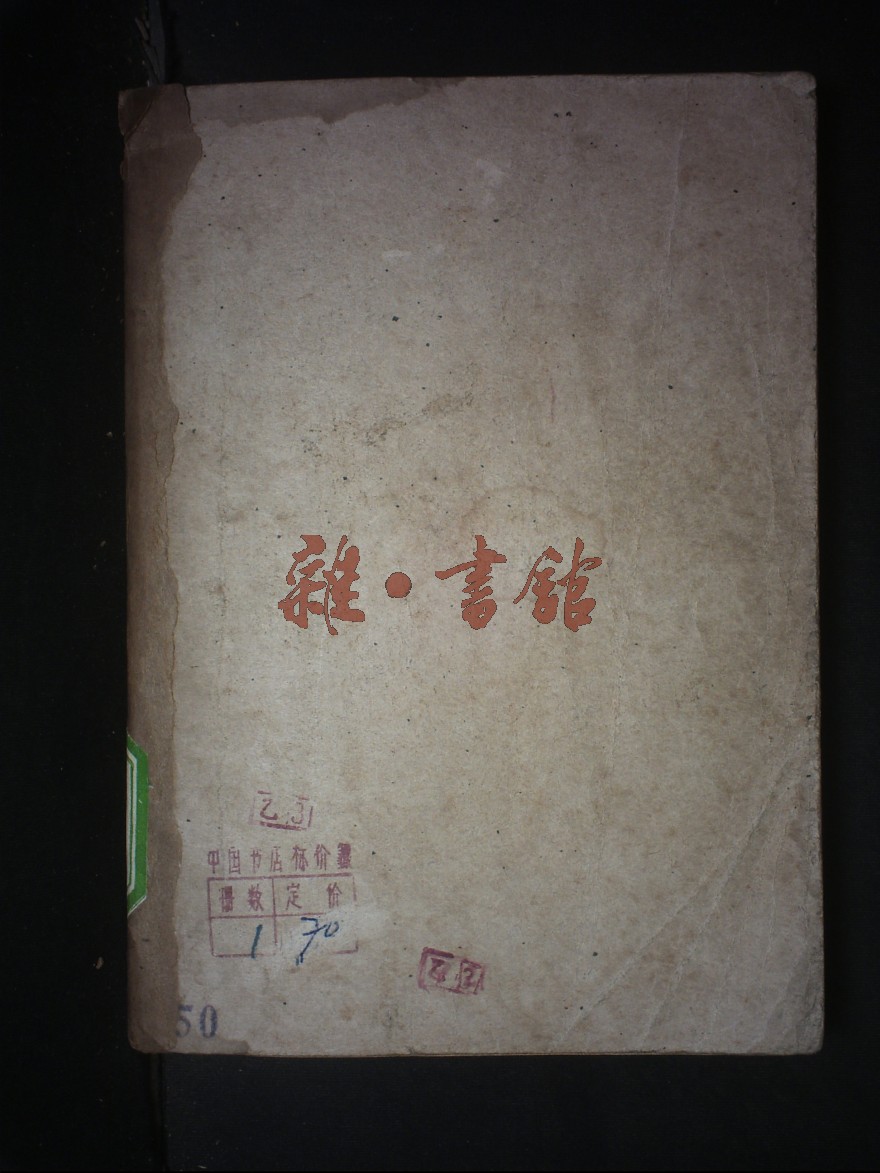 雜·書館
乙 3
中国书店标价签
册数 定价
1 .70
乙 3
50